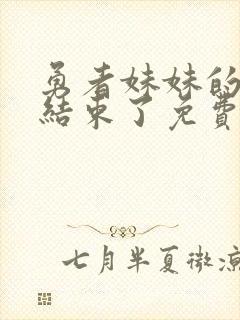 勇者妹妹的
結束了免費
七月半夏微涼